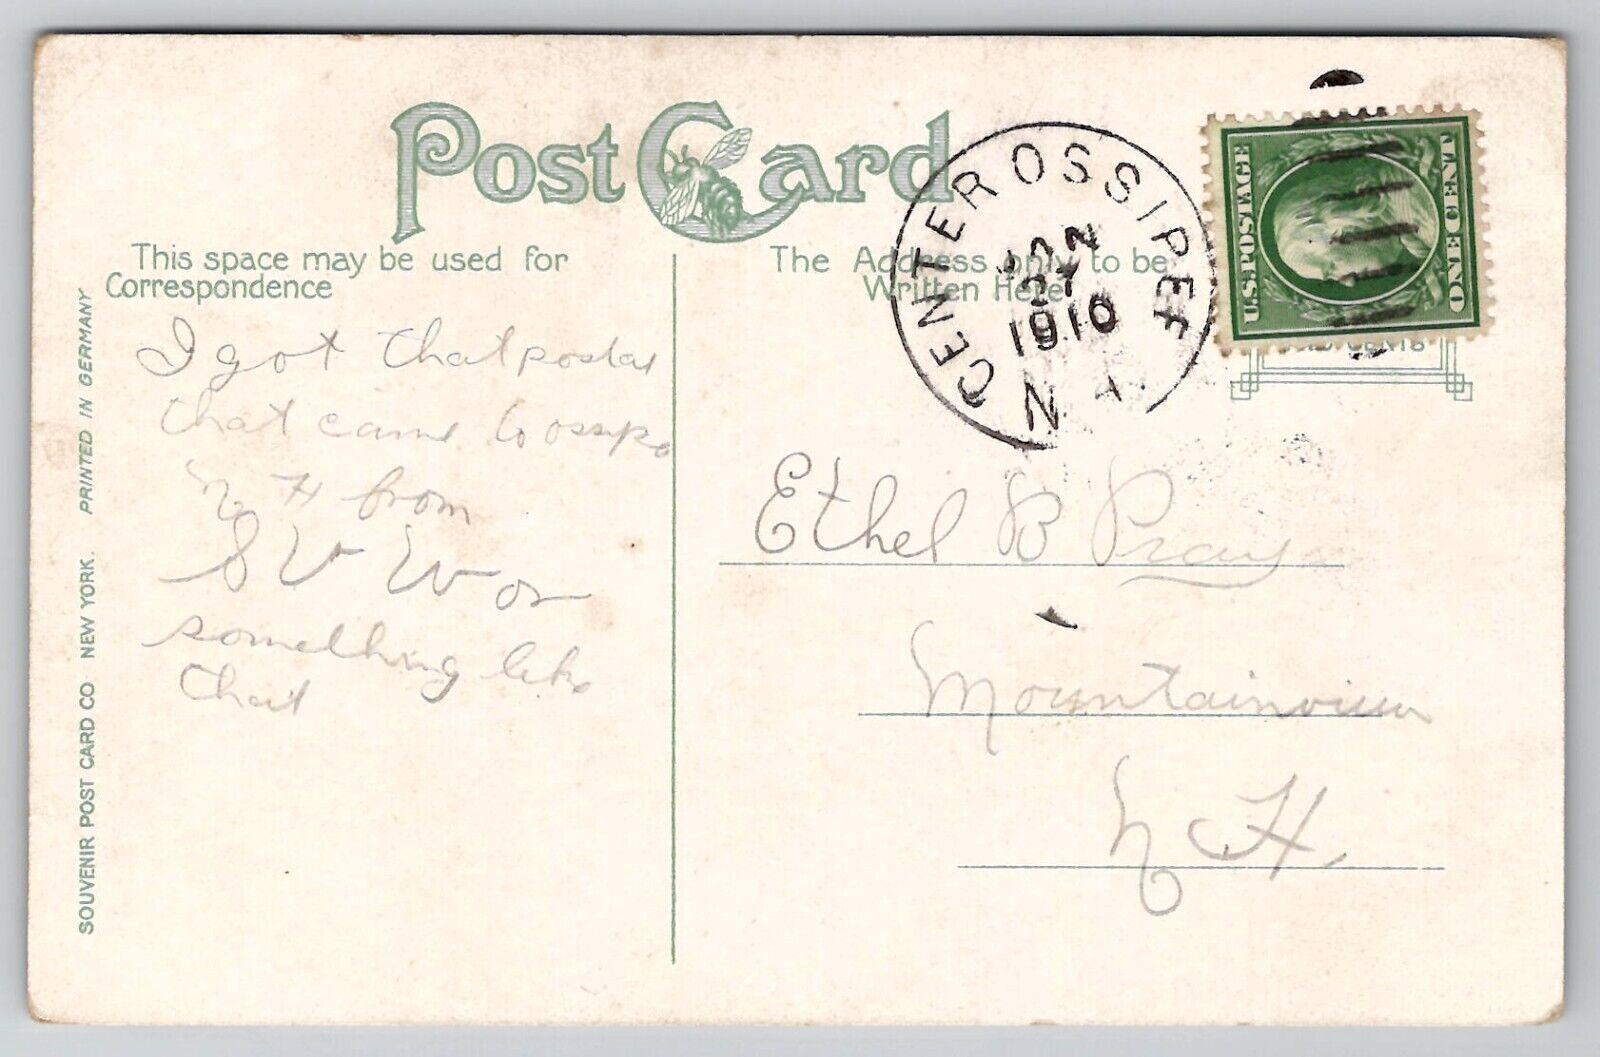 Post Card
This space may be used for
Correspondence
The Address only to be
Written Here
SOUVENIR POST CARD CO NEW YORK. PRINTED IN GERMANY
I got that postal
that came to ossipe
N H from
S W W or
something like
that
CENTER OSSIPEE
JUN
27
1910
N
U.S.POSTAGE
ONE CENT
CENTS
Ethel B Pray
Mountainview
N H.